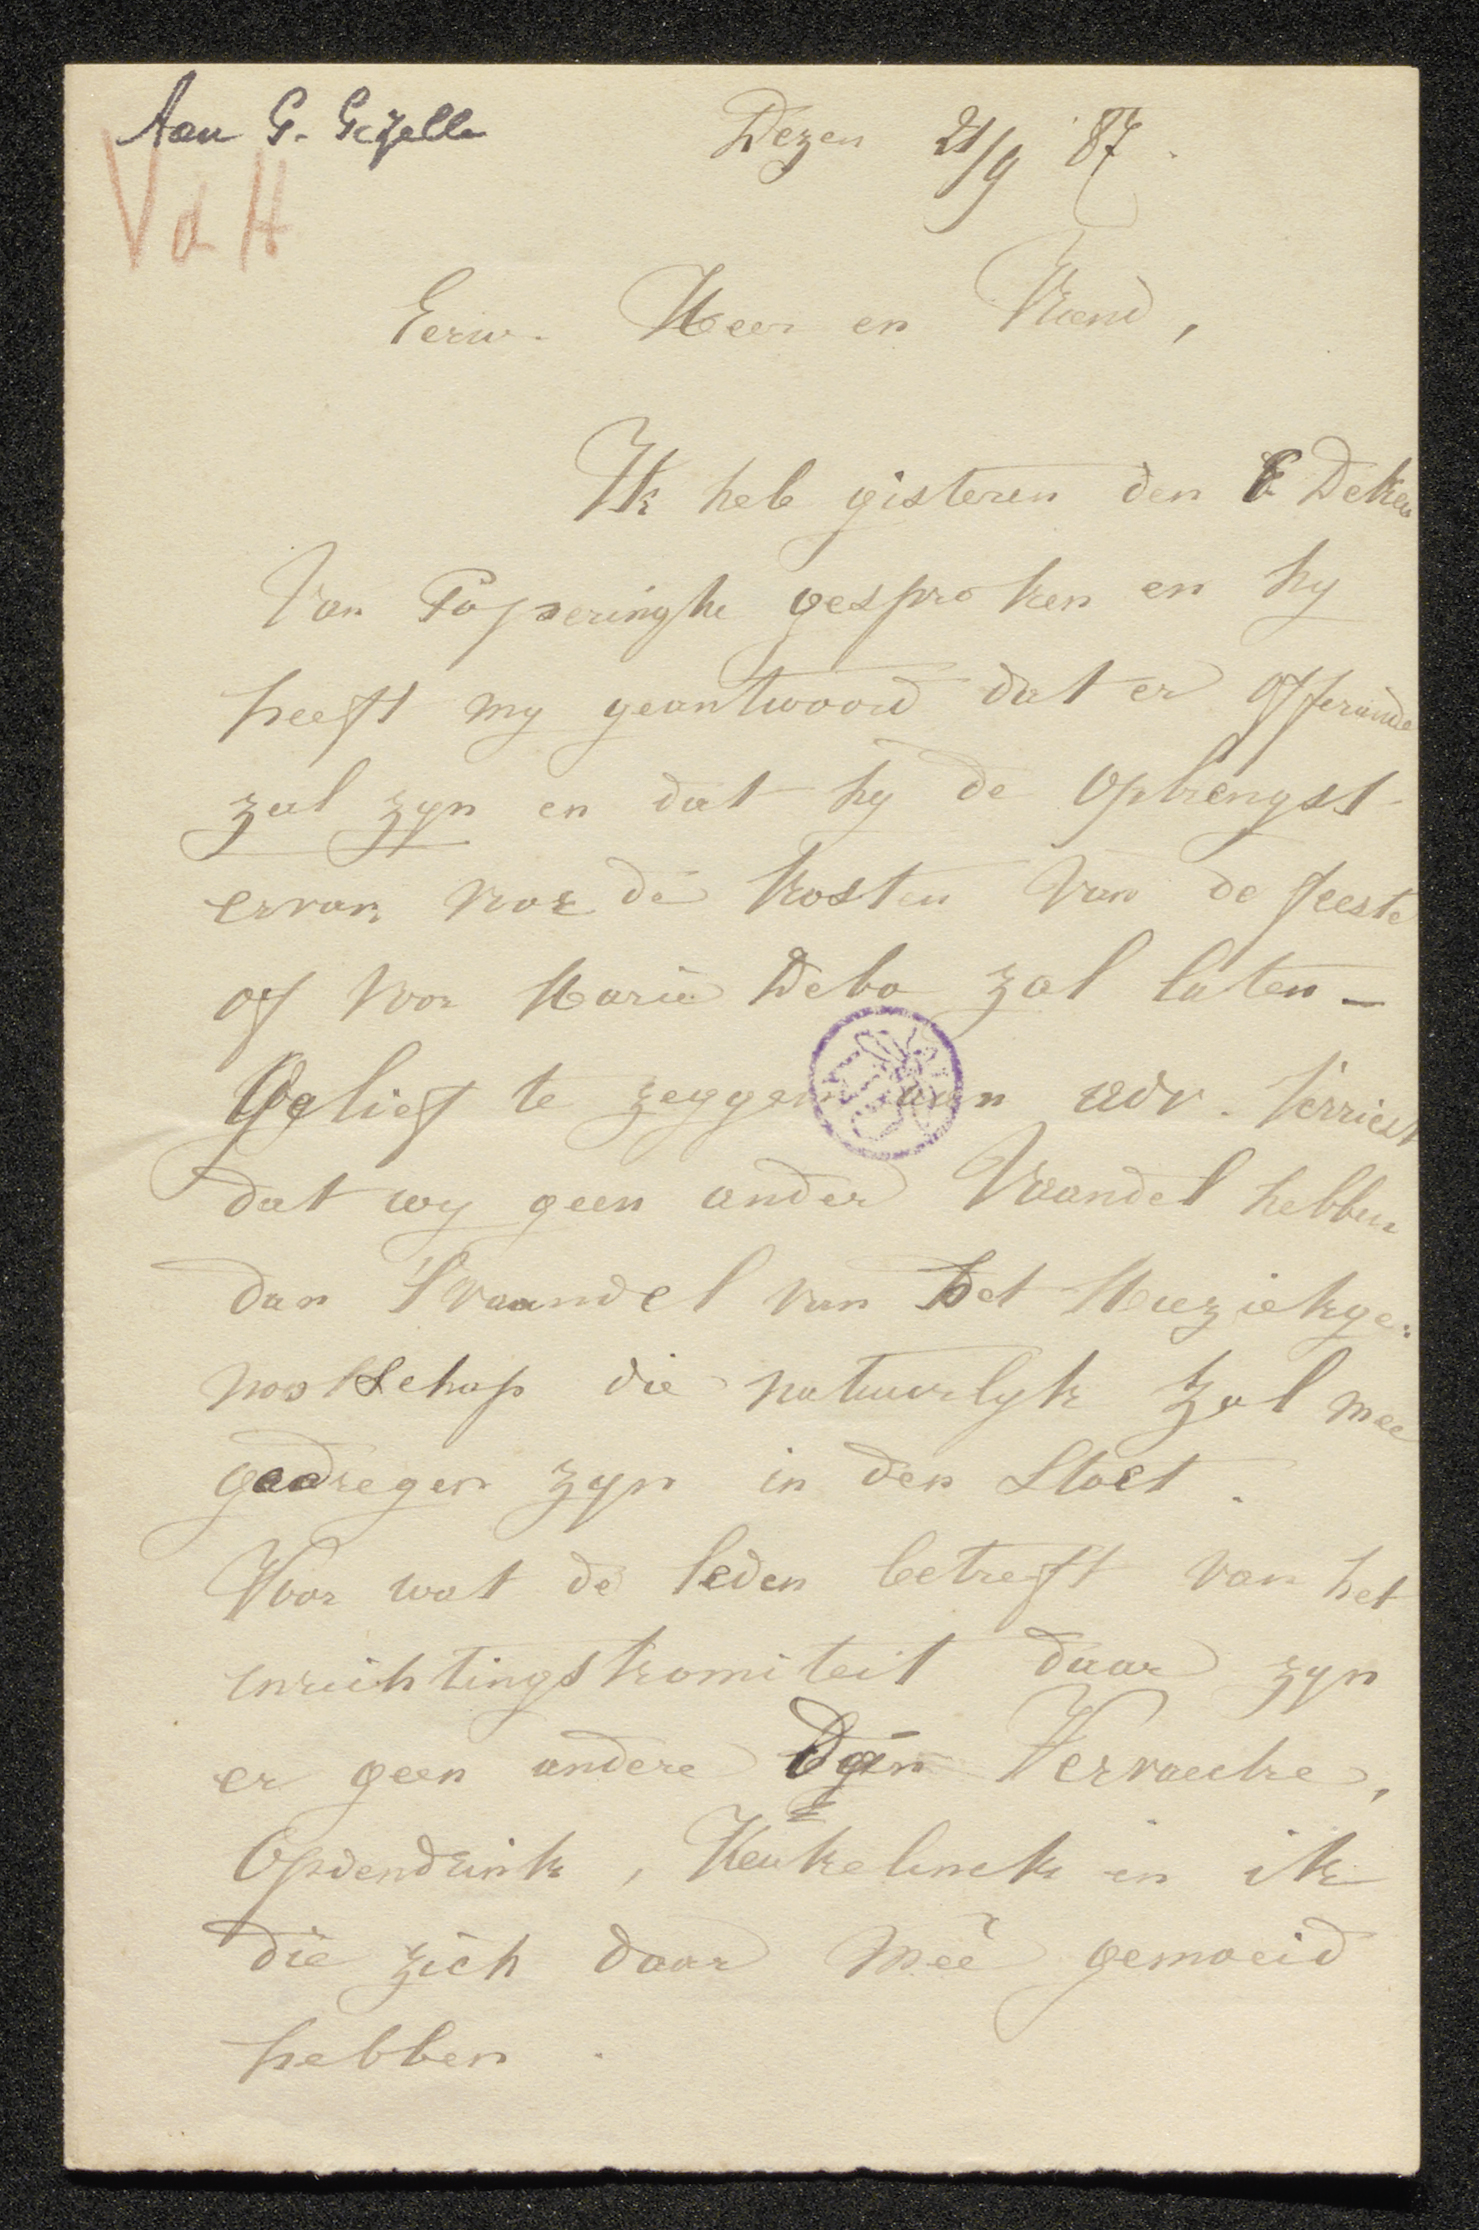 Aan G. Gezelle
Dezen 21/9 '87.
VdH
Eerw. Heer en Vriend,
Ik heb gisteren den E Deken
van Poperinghe gesproken en hy
heeft my geantwoord dat er offerande
zal zyn en dat hy de opbrengst
ervan voor de kosten van de feeste
of voor Marie Debo zal laten -
Gelieft te zeggen aan adv. Verriest
dat wy geen ander Vaandel hebben
dan 't vaandel van het Muziekge-
nootschap die natuurlyk zal mee
gedregen zyn in den Stoet.
Voor wat de leden betreft van het
inrichtingskomiteit daar zyn
er geen andere Vervaecke,
Opdendrink, Keukelinck en ik
die zich daar meê gemoeid
hebben.